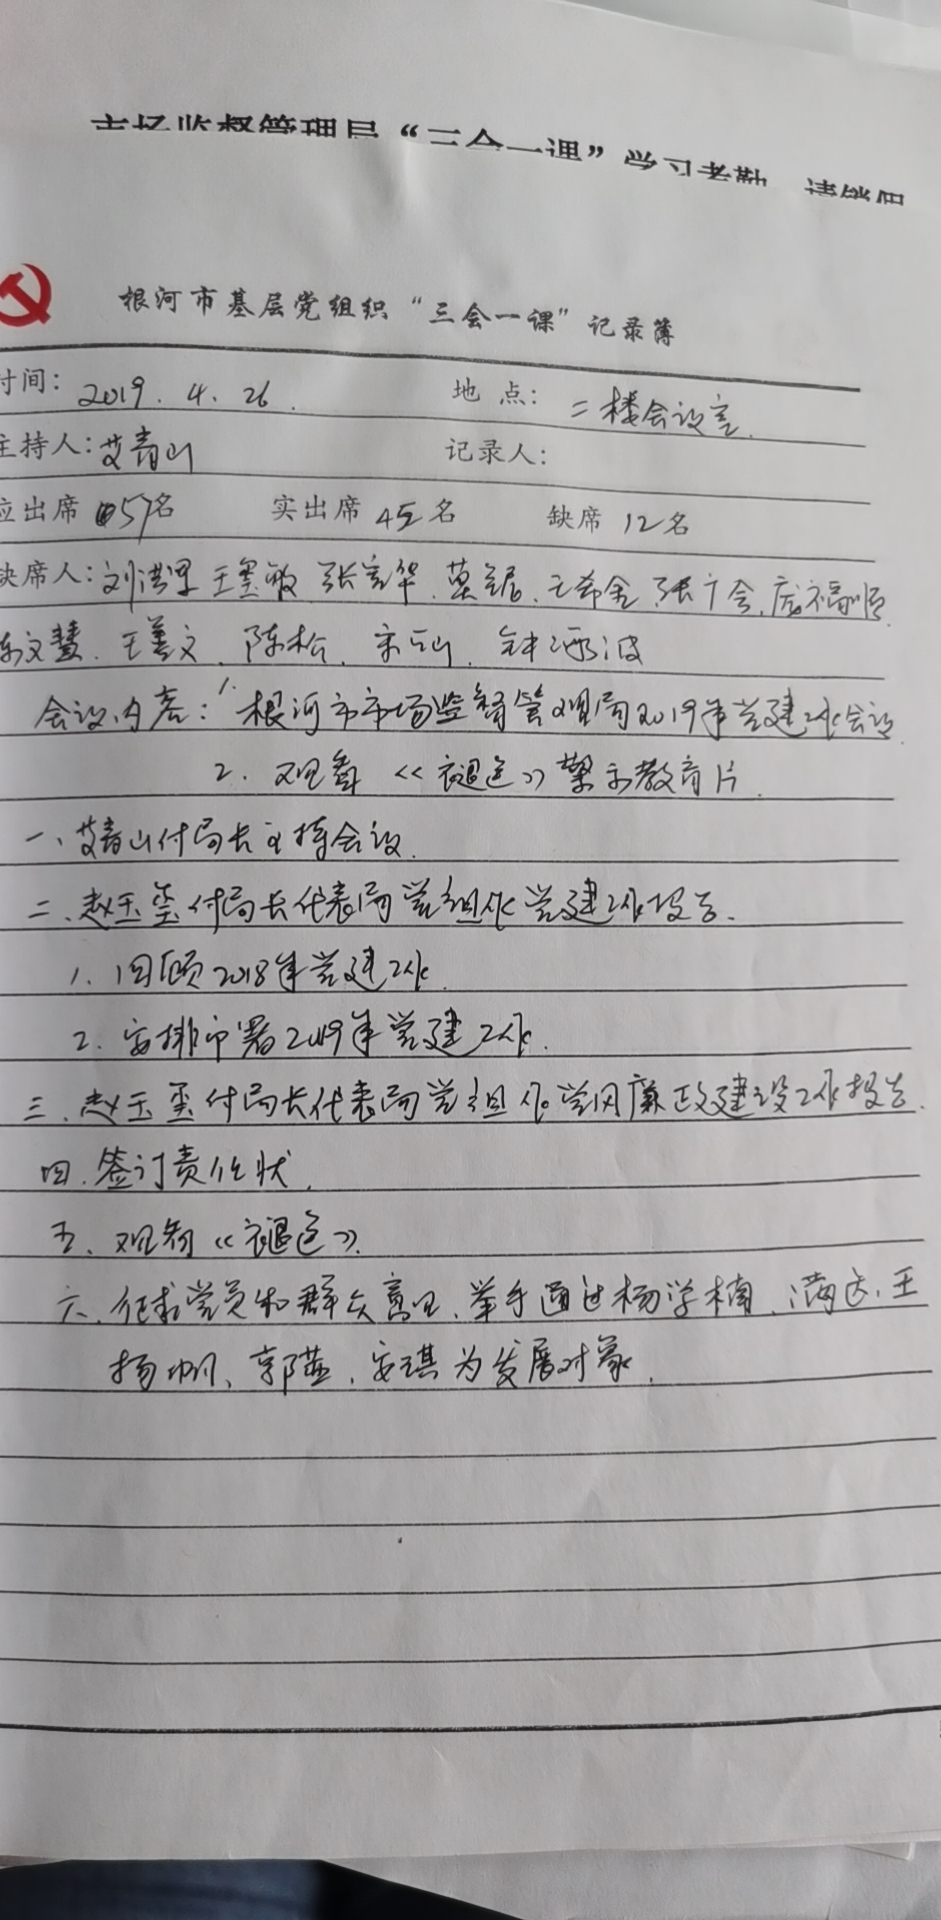 市场监督管理局“三会一课”学习考勤、请销假
根河市基层党组织“三会一课”记录簿
时间：2019.4.26. 地点：二楼会议室.
主持人：艾青山 记录人：
应出席 57名 实出席 45名 缺席 12名
缺席人：刘洪军 王墨敏 张 华. 王希金. 张 会.
陈文慧. 王善文. 陈松. 宋 山. 钟 波
会议内容：1. 根河市市场监督管理局2019年党建工作会议
2. 观看《褪色》警示教育片.
一、艾青山付局长主持会议.
二.赵玉玺付局长代表局党组作党建工作报告.
1. 回顾2018年党建工作.
2. 安排部署2019年党建工作.
三.赵玉玺付局长代表局党组作党风廉政建设工作报告.
四.签订责任状.
五、观看《褪色》.
六.征求党员和群众意见.举手通过杨学楠.满达.王
扬帆、郭蕊.安琪为发展对象.